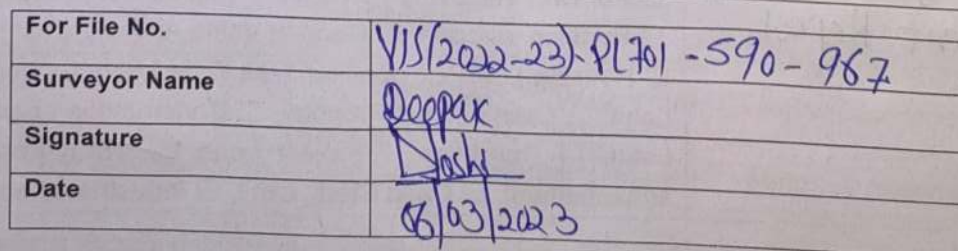 For File No. VIS(2022-23)-PL701-590-967
Surveyor Name Deepak
Signature Joshi
Date 06/03/2023